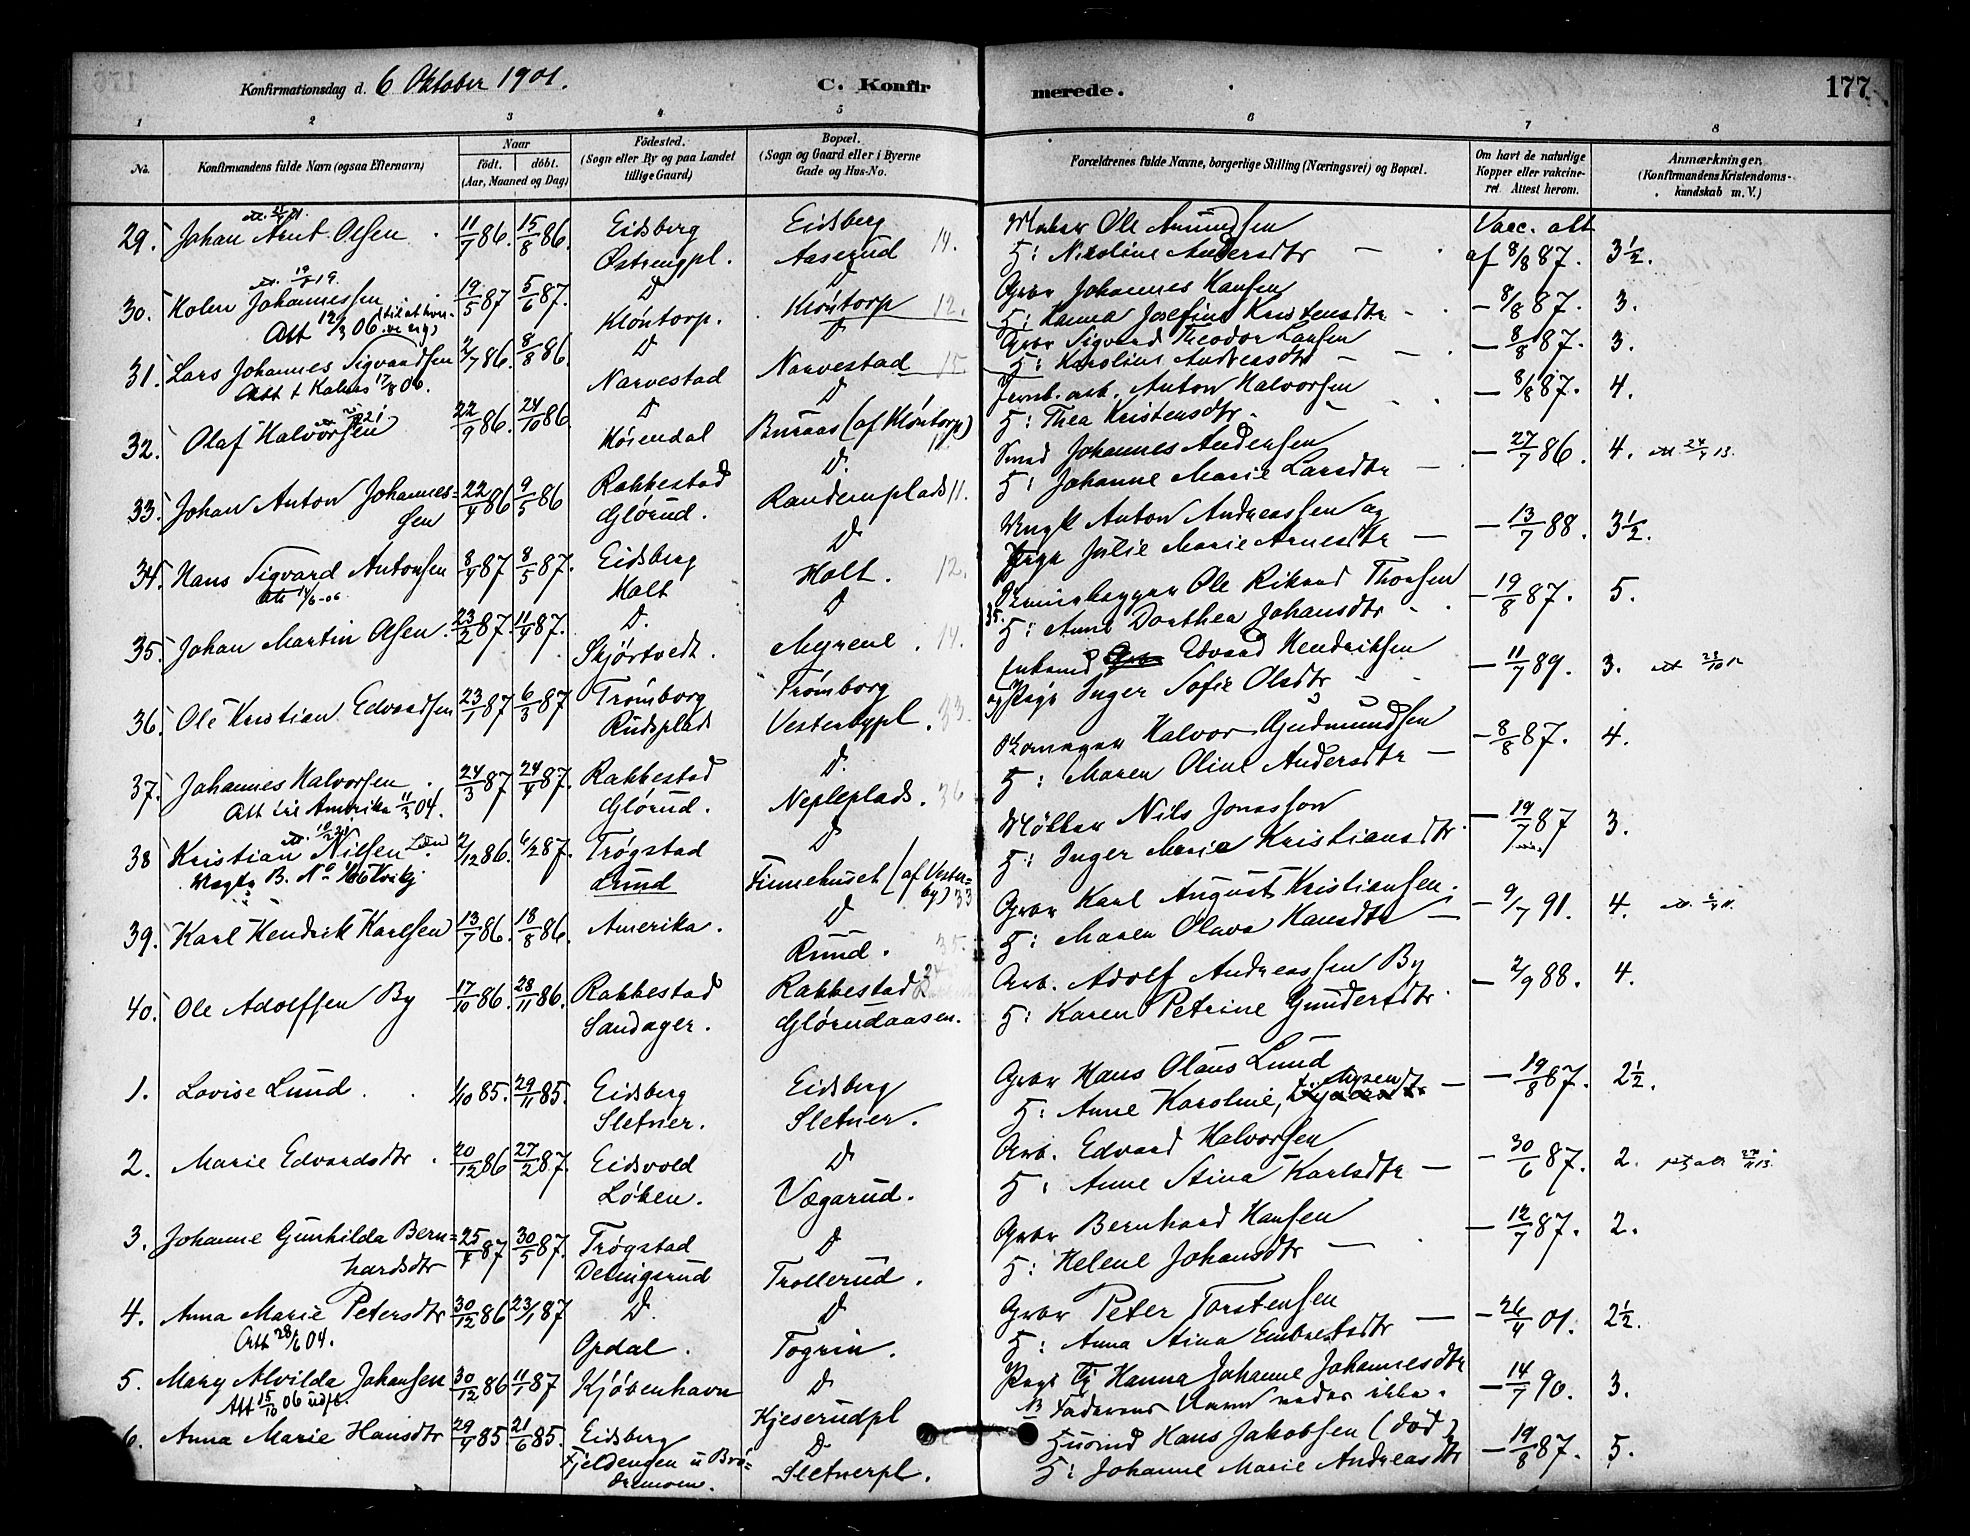 Konfirmationsdag d. 6 Oktober 1901. C. Konfir merede. 177
1 2 3 4 5 6 7 8
No. Konfirmandens fulde Navn (ogsaa Efternavn) Naar födt. döbt. (Aar, Maaned og Dag) Födested. (Sogn eller By og paa Landet tillige Gaard) Bopæl. (Sogn og Gaard eller i Byerne Gade og Hus-No. Forældrenes fulde Navne, borgerlige Stilling (Næringsvei) og Bopæl. Om havt de naturlige Kopper eller vakcineret. Attest herom. Anmærkninger. (Konfirmandens Kristendomskundskab m. V.)
29. Johan Arnt Olsen 11/7 86. 15/8 86. Eidsberg Eidsberg 14. Maler Ole Amundsen Vacc. att
Østrengpl. Aaserud H: Nicoline Andersdtr — af 8/8 87. 3½.
30. Holm Johannessen 19/5 87 5/6 87. D D Grbr Johannes Hansen — 8/8 87. 3.
Att 12/3 06 Klöntorp. Klöntorp 12. H: Hanna Josefine Kristensdtr
31. Lars Johannes Sigvardsen 2/7 86. 8/8 86. D D Grbr Sigvard Theodor Larsen — 8/8 87. 3.
Att t Kalnes 17/8 06. Narvestad Narvestad 15. H: Karoline Andreasdtr
32. Olaf Halvorsen 22/9 86. 24/10 86. D D Jernb. arb. Anton Halvorsen — 8/8 87. 4.
Hörendal Buraas (af Klöntorp) 11. H: Thea Kristensdtr.
33. Johan Anton Johannes= 22/4 86 9/5 86 Rakkestad D. Smed Johannes Andersen — 27/7 86. 4. 24/7 13.
sen Glörud. Randemplads 11. H: Johanne Marie Larsdtr —
34. Hans Sigvard Antonsen 8/4 87 8/5 87. Eidsberg D Ungk Anton Andreassen og — 13/7 88. 3½.
Att 14/6-06 Holt Holt. 12. Pige Julie Marie Arnesdtr —
35. Johan Martin Olsen. 23/2 87. 11/4 87. D. D Ole Rikard Thorsen — 19/8 87. 5.
Skjörtvedt. Myrene. 14. H: Anne Dorthea Johansdtr
36. Ole Kristian Edvardsen 23/1 87 6/3 87 Trömborg Trömborg Enkemd Edvard Hendriksen — 11/7 89. 3. 23/10 12
Rudsplads Vesterbypl. 33. og Pige Inger Sofie Olsdtr
37. Johannes Halvorsen 24/3 87 24/4 87. Rakkestad D. Skomager Halvor Gudmundsen — 8/8 87. 4.
Att til Amerika 11/3 04. Glörud. Nepleplads. 36 H: Maren Oline Andersdtr —
38 Kristian Nilsen Lund 2/12 86. 6/2 87. Trögstad D Möller Nils Jonasson — 19/7 87 3.
Lund Finnehuset (af Vester= by) 33 H: Inger Marie Kristiansdtr
39. Karl Hendrik Karlsen 13/7 86. 18/8 86. Amerika. D Grbr Karl August Kristiansen. — 9/7 91. 4.
Ruud. 35. H: Maren Olava Hansdtr —
40. Ole Adolfsen By 17/10 86. 28/11 86. Rakkestad Rakkestad Arb. Adolf Andreassen By — 2/9 88. 4.
Sandager. Glörudaasen. H: Karen Petrine Gundersdtr
1. Lovise Lund. 1/10 85. 29/11 85. Eidsberg Eidsberg Grbr Hans Olaus Lund — 19/8 87. 2½.
Sletner. Sletner. H: Anne Karoline,
2. Marie Edvardsdtr 20/12 86 27/2 87. Eidsvold D Arb. Edvard Halvorsen — 30/6 87. 2.
Löken. Vægarud. H: Anne Stina Karlsdtr —
3. Johanne Gunhilda Bern= 25/4 87 30/5 87. Trögstad D Grbr Bernhard Hansen — 12/7 87. 2.
hardsdtr Delingsrud Trollerud. H: Helene Johansdtr —
4. Anna Marie Petersdtr 30/12 86 23/1 87 D. D Grbr Peter Torstensen — 26/4 01. 2½.
Att 28/6 04. Opdal. Togrin. H: Anna Stina Embretsdtr —
5. Mary Alvilda Johansen 30/12 86 11/1 87 Kjöbenhavn D Pige Hanna Johanne Johannesdtr — 14/7 90. 3.
Att 15/10 06 udfl. Kjeserudpl Faderens Navn vides ikke.
6. Anna Marie Hansdtr 29/4 85. 21/6 85. Eidsberg D Husmd Hans Jakobsen (död) — 19/8 87. 5.
Fjeldengen u Bra= Sletnerpl. H: Johanne Marie Andreasdtr